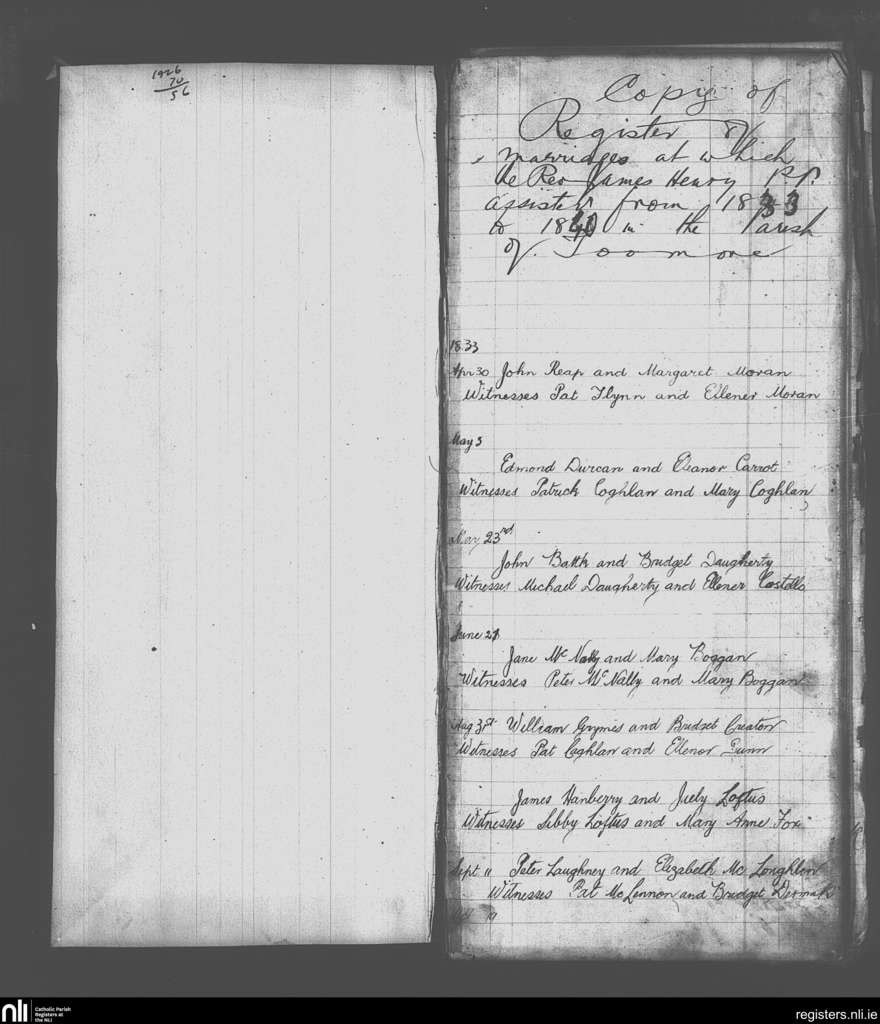 1926
70
56
Copy of
Register of
marriages at which
the Rev James Henry P.P.
assisted from 1833
to 1840 in the Parish
of Toomore
1833
Apr 30 John Reap and Margaret Moran
Witnesses Pat Flynn and Ellener Moran
May 3
Edmond Durcan and Eleanor Carrot
Witnesses Patrick Coghlan and Mary Coghlan
May 23rd
John Battle and Bridget Daugherty
Witnesses Michael Daugherty and Ellener Costello
June 21
Jane Mc Nally and Mary Boggan
Witnesses Peter McNally and Mary Boggan
Aug 31st William Grymes and Bridget Creaton
Witnesses Pat Coghlan and Ellenor Gunn
James Hanberry and Juely Loftus
Witnesses Sibby Loftus and Mary Anne Fox
Sept 11 Peter Laughney and Elizabeth Mc Loughlin
Witnesses Pat McLennon and Bridget
nli
Catholic Parish
Registers at
the NLI
registers.nli.ie